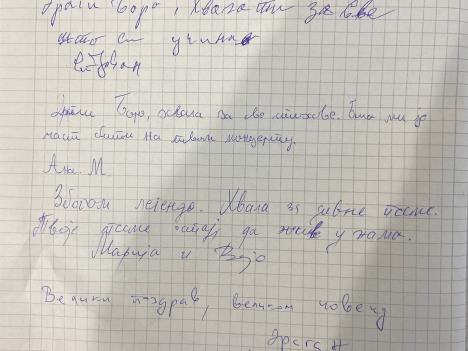 Драги Боро, Хвала ти за све
што си учинио
Стојан
Драги Боро, хвала за све стихове. Била ми је
част бити на твом концерту.
Ана М.
Збогом легендо. Хвала за дивне песме.
Твоје песме остају да живе у нама.
Марија и
Велики поздрав, великом човеку
Драган